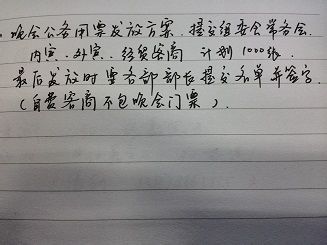 晚会公务用票发放方案.提交组委会常务会.
内宾.外宾.经贸客商 计划1000张.
最后发放时要各部部长提交名单并签字.
(自费客商不包晚会门票).